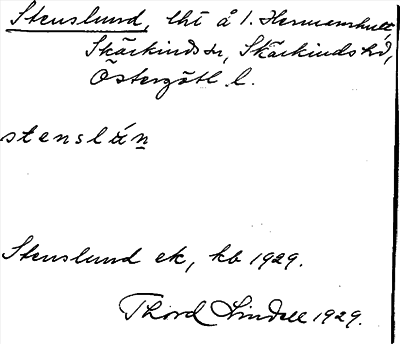 Stenslund, lht å 1. Hermanshult,
Skärkinds sn, Skärkinds hd,
Östergötl. l.
stenslán̲
Stenslund ek, kb 1929.
Thord Lindell 1929.